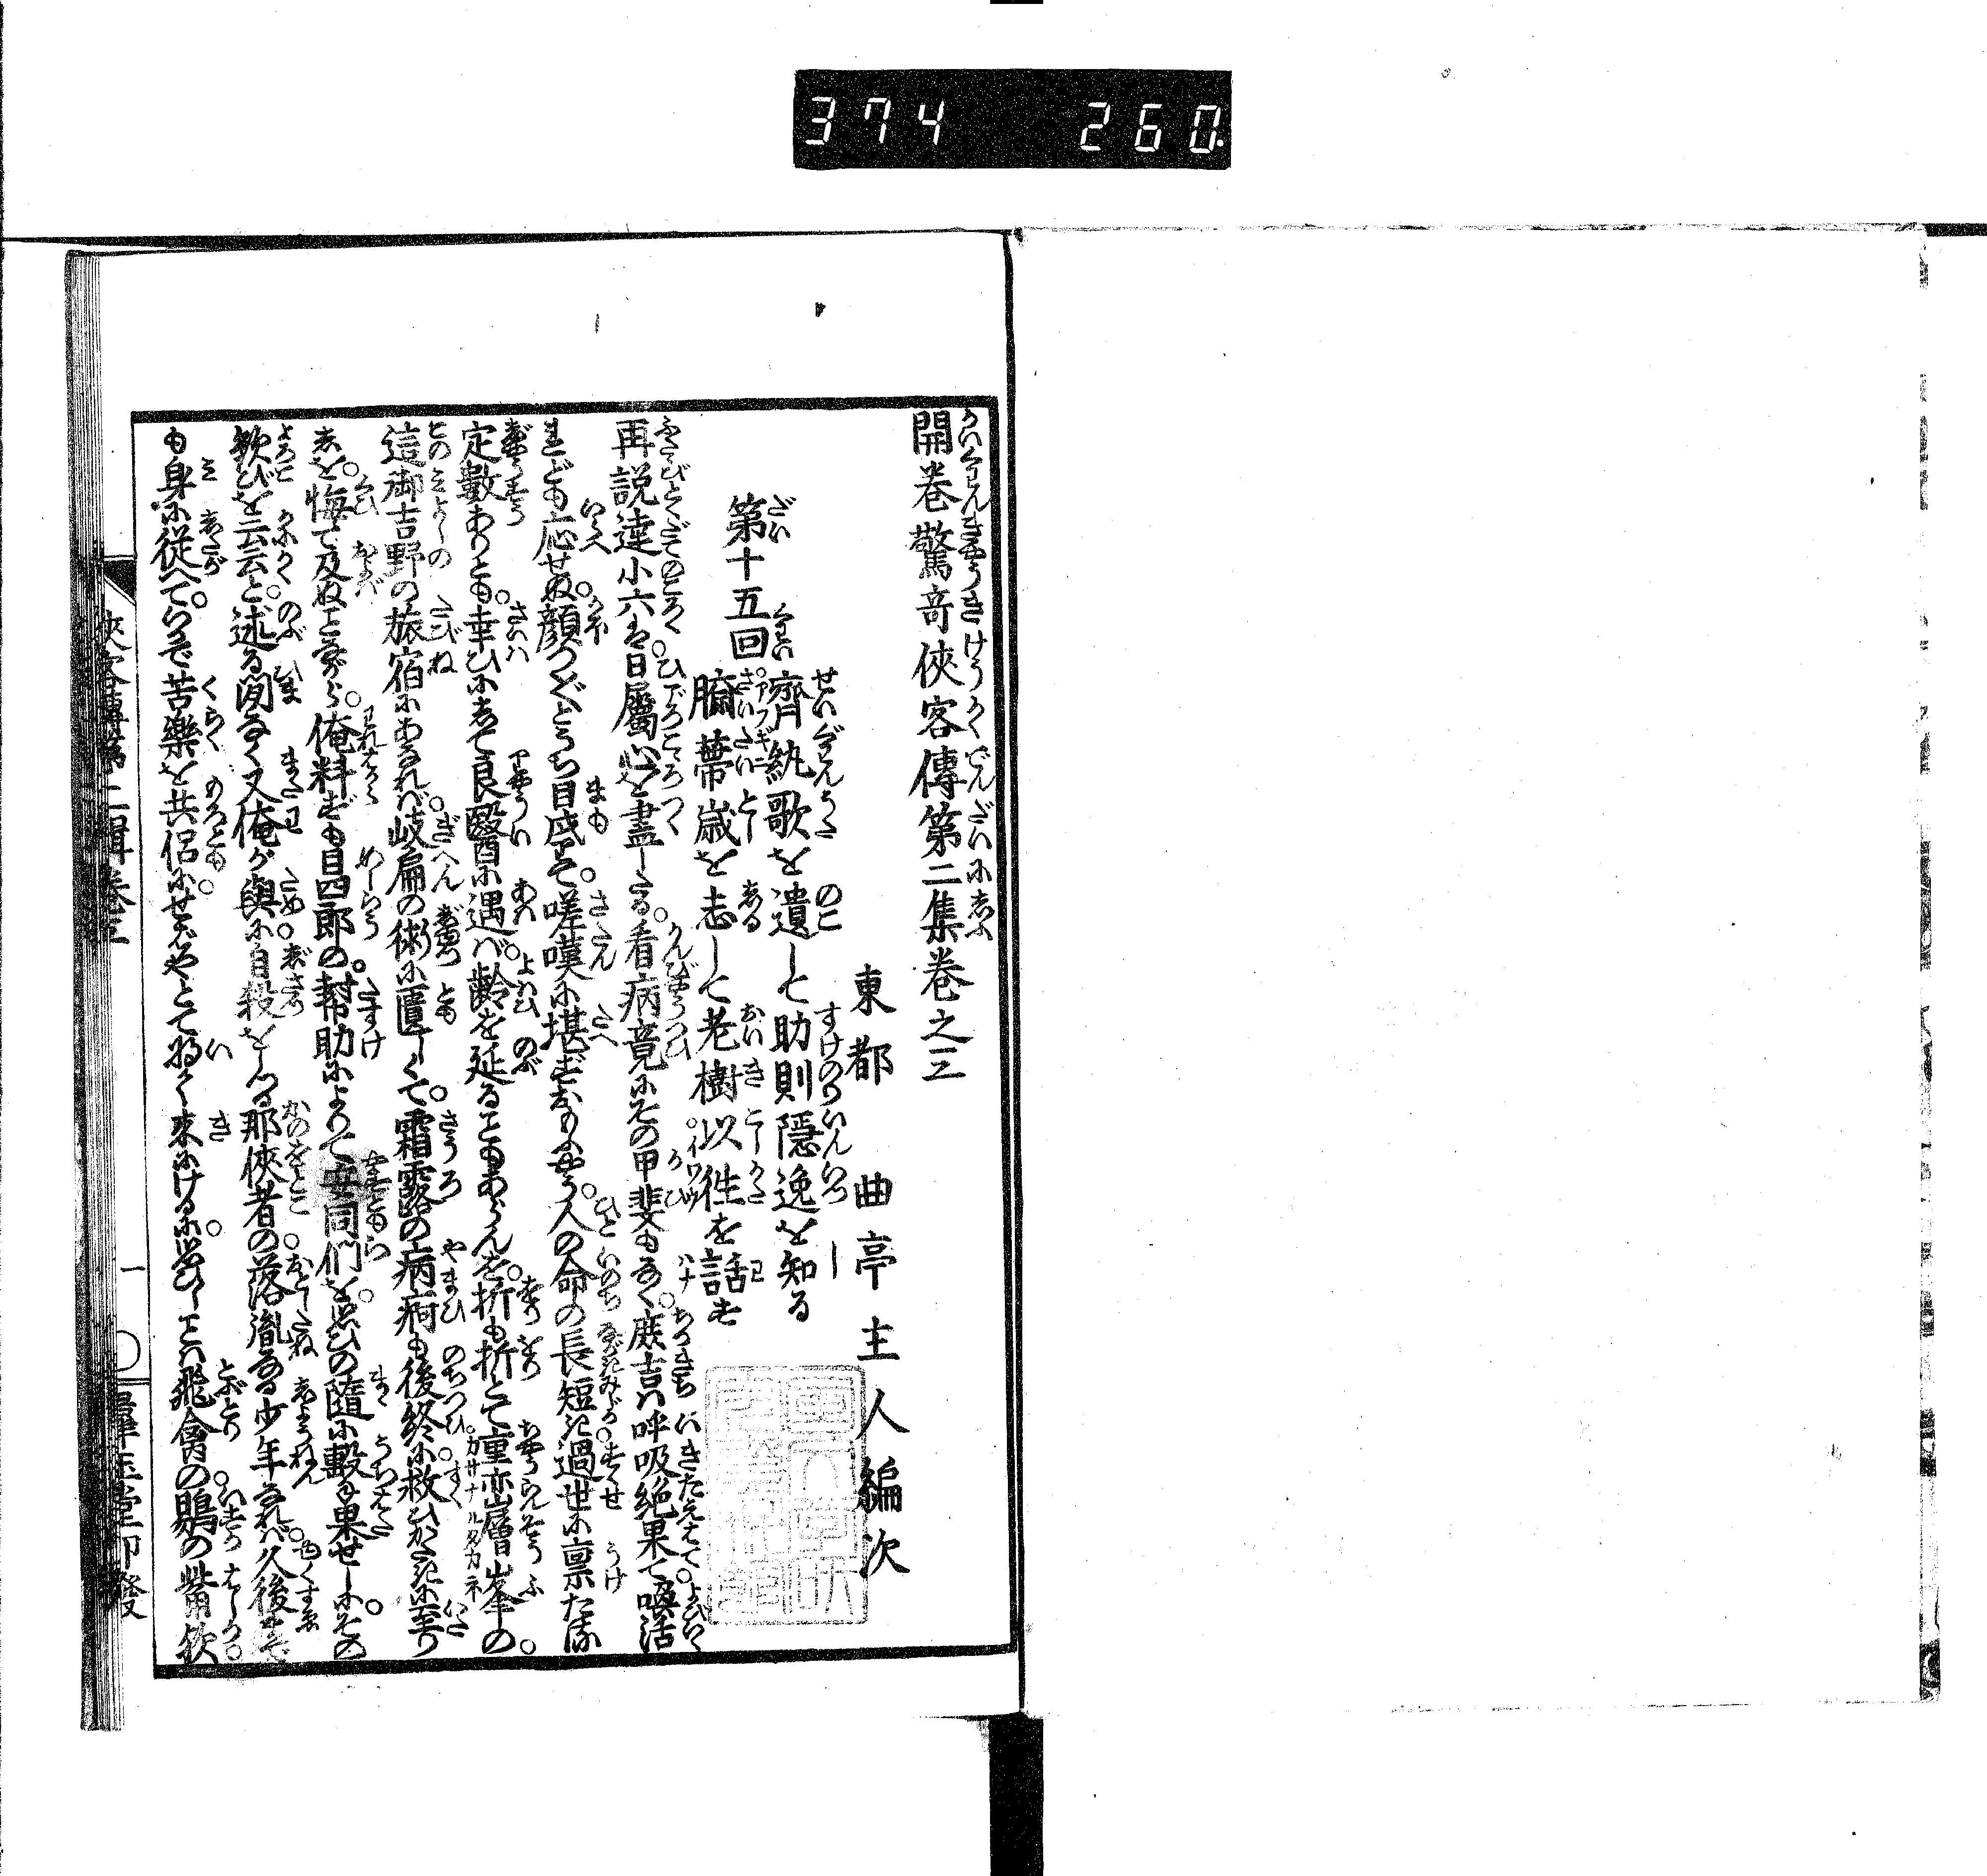 374 260
開巻驚奇俠客傳第二集巻之三
東都 曲亭主人編次
第十五回
齊紈歌を遺して助則隠逸を知る
臍帯歳を志して老樹以徃を話す
再説達小六は日屬心を盡したる看病竟にその甲斐もなく蔗吉ハ呼吸絶果て喚活
れども応せぬ顔つく〲とうち目戍て嗟嘆に堪ずありけり人の命の長短き過世に稟たる
定數ありとも幸ひにして良醫に遇バ齢を延ることもあらんを折も折とて重巒層峯の
這御吉野の旅宿にあなれバ岐扁の術に匱しくて霜露の病痾も後終に救ひかたきに至り
しを悔て及ぬことながら俺料ずも目四郎の幇助によりて
們を思ひの隨に轂果せしにその
歓びを云云と述る間なく又俺が與に自殺をしつる那俠者の落胤なる少年なれバ久後まで
も身に従へてらで苦樂を共侶にせばやとて将て来にけるに思ひしことハ飛禽の鶍の觜歟
俠客傳第二輯巻三
一